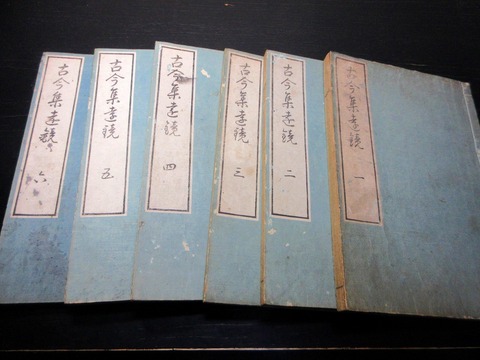 古今集遠鏡 一
古今集遠鏡 二
古今集遠鏡 三
古今集遠鏡 四
古今集遠鏡 五
古今集遠鏡 六